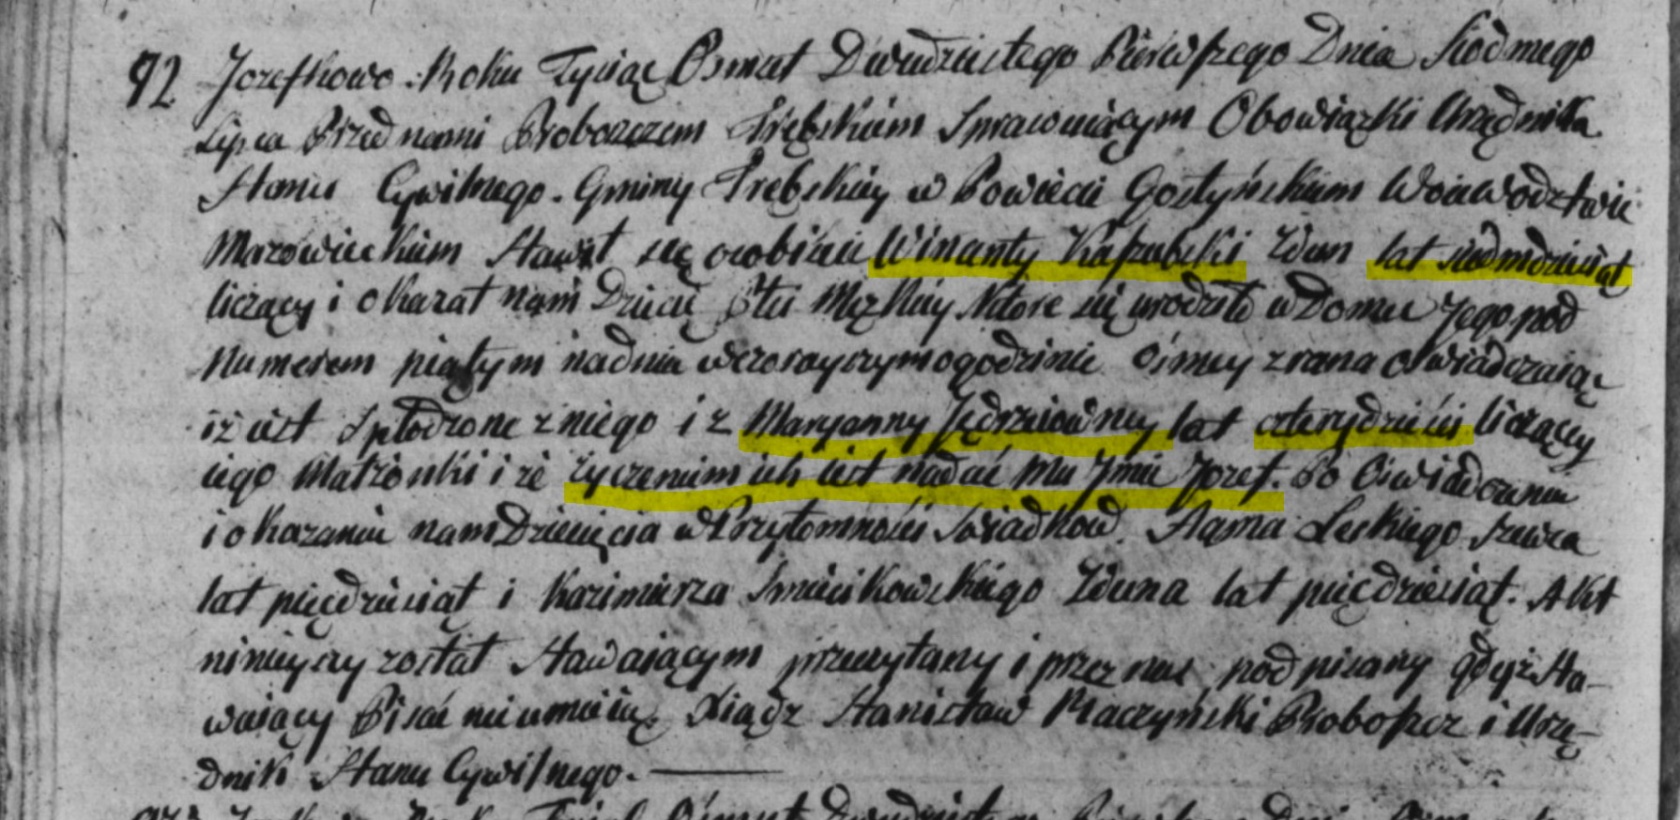 92 Jozefkowo. Roku Tysiąc Osmset Dwudziestego Pierwszego Dnia Siodmego
Lipca Przed nami Proboszczem Trębskiem Sprawuiącym Obowiązki Urzędnika
Stanu Cywilnego. Gminy Trębskiey w Powiecie Gostyńskim Woiewodztwie
Mazowieckim Stawił się osobiście Wincenty Kaszubski Zdun lat siedmdziesiąt
liczący i okazał nam Dziecię Płci Męzkiey Które się urodziło w Domu Jego pod
Numerem piątym na dniu wczorayszym o godzinie Osmey z rana oświadczaiąc
iż iest Spłodzone z niego i z Maryanny Jędrzeiówney lat czterydzieści liczącey
iego Małżonki i że życzeniem ich iest nadać mu Jmie Jozef. Po Oświadczeniu
i okazaniu nam Dziecięcia w Przytomności Swiadków. Leskiego Szewca
lat pięcdziesiąt i Kazimierza Zduna lat pięcdziesiąt. Akt
ninieyszy został Stawaiącym przeczytany i przez nas podpisany gdyż Sta-
waiący Pisać nie umieią. Xiądz Stanisław Raczyński Proboszcz i Urzę-
dnik Stanu Cywilnego.